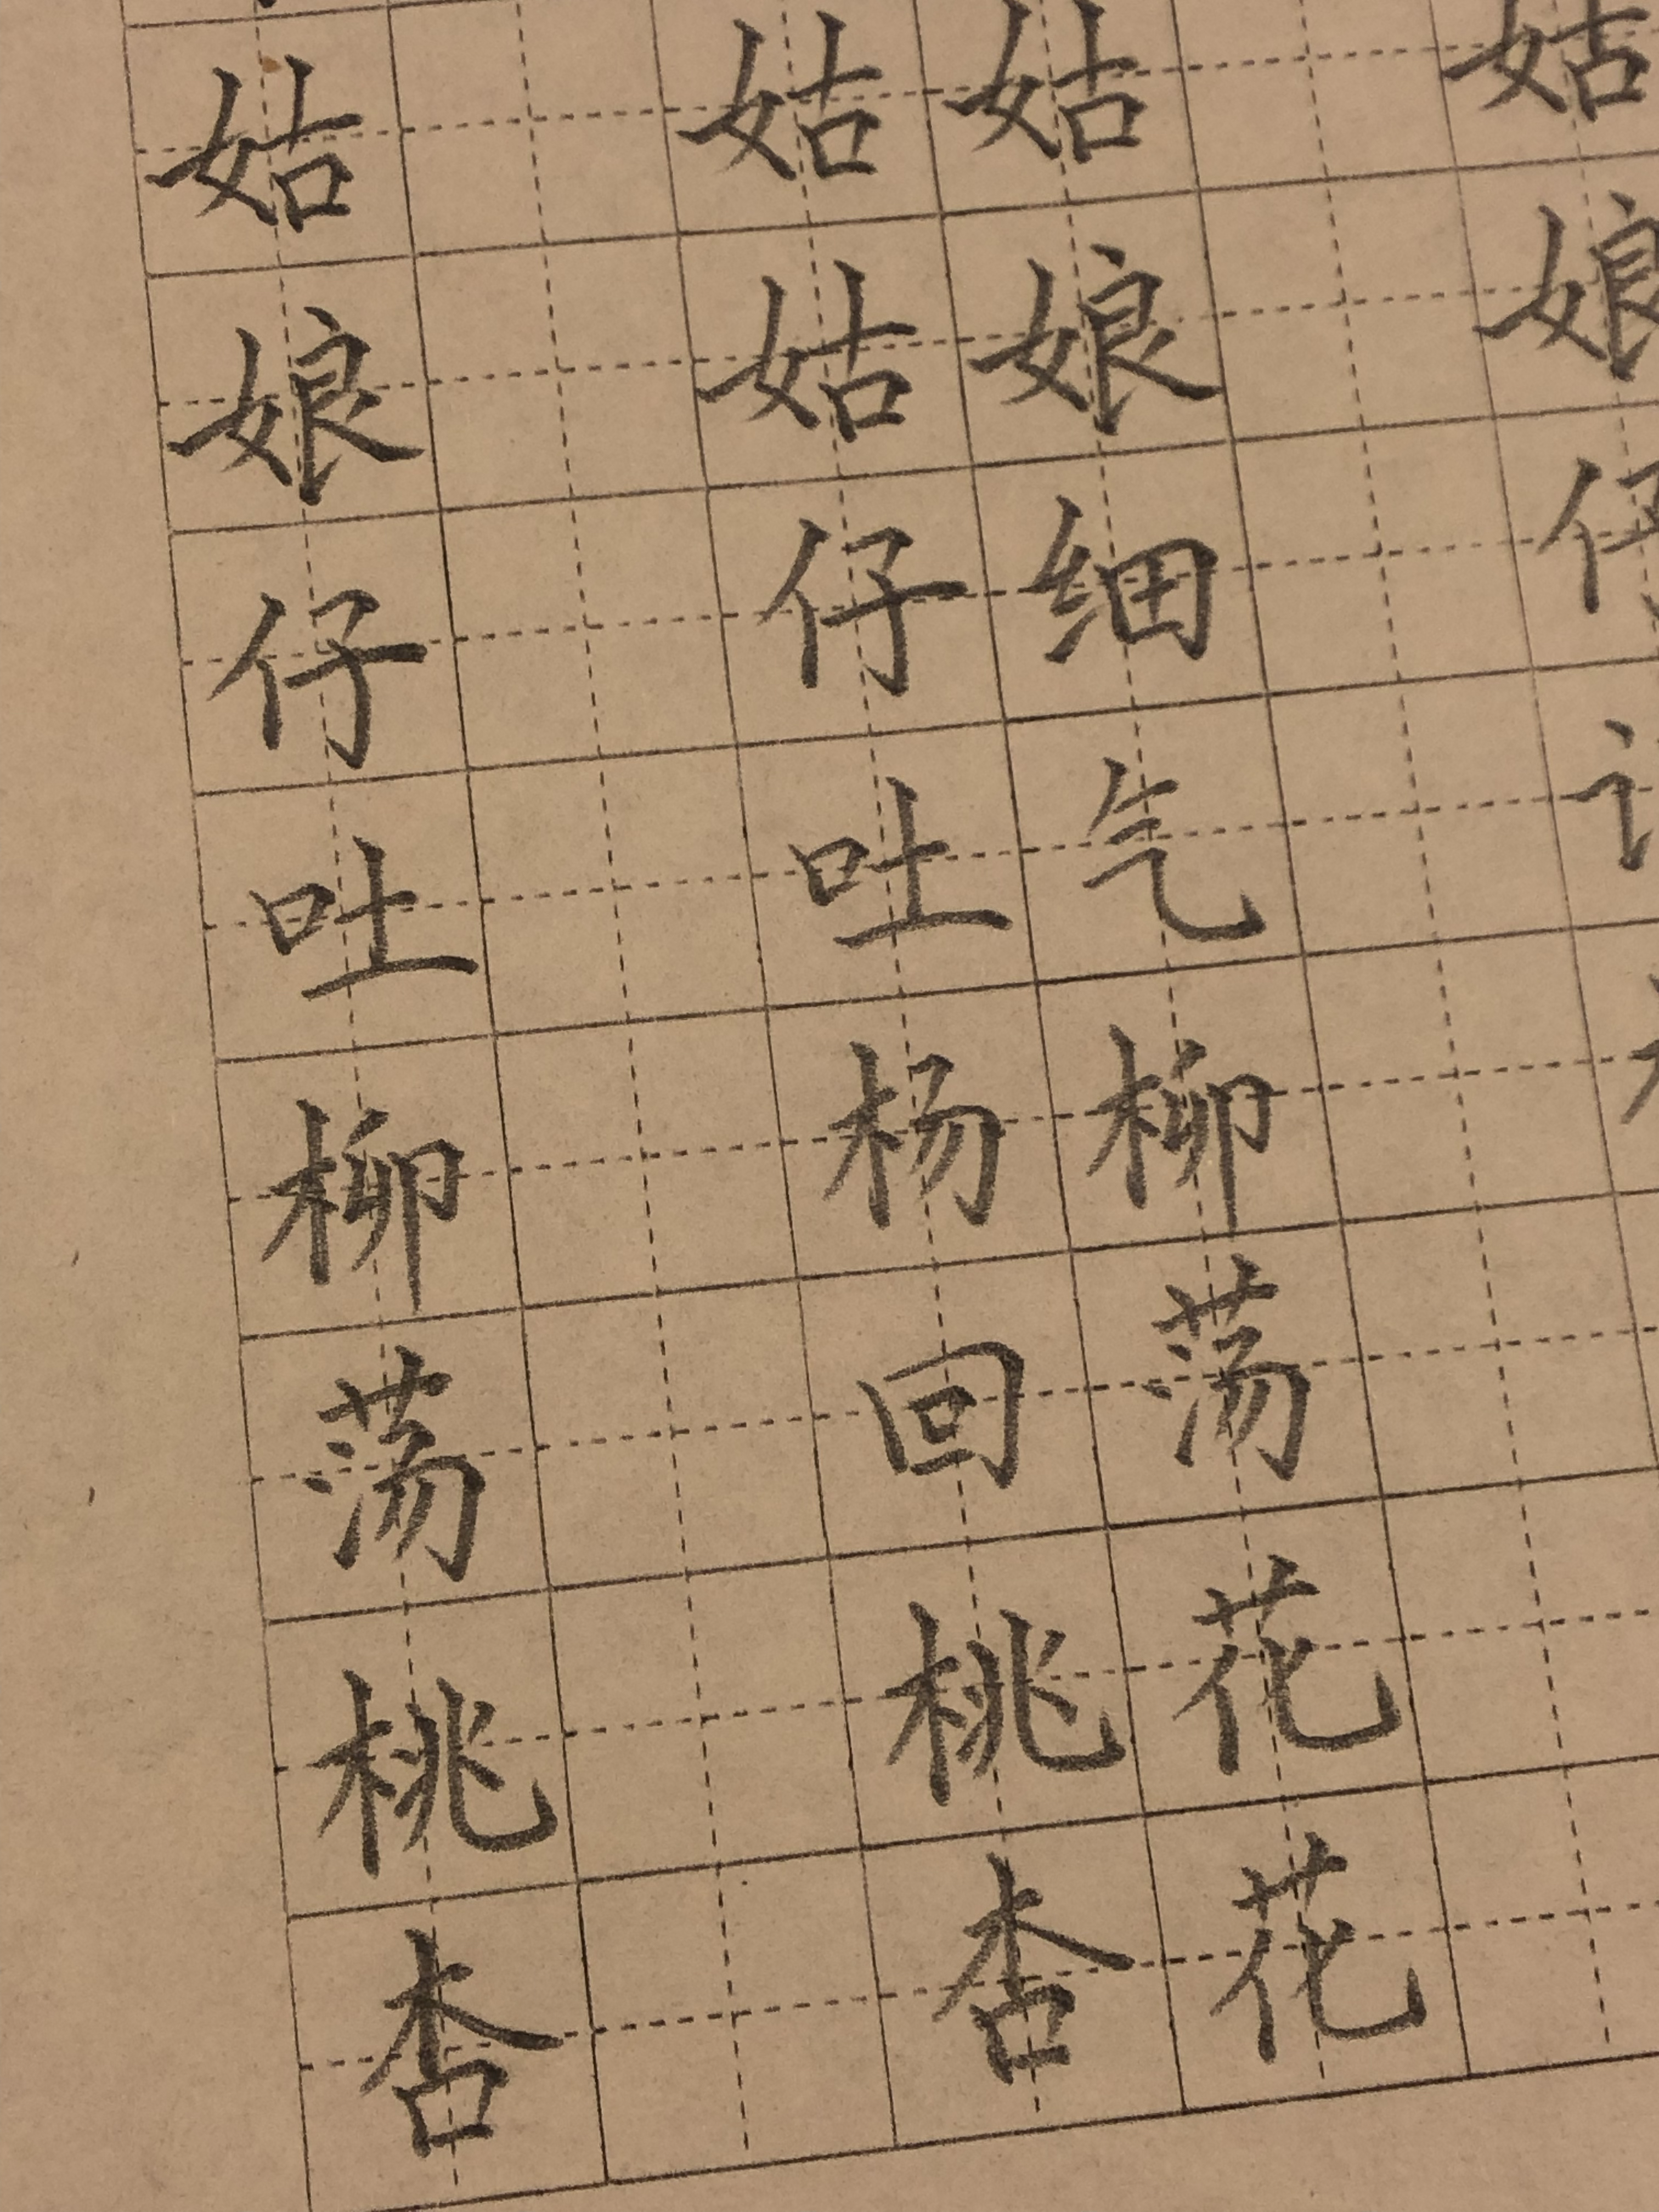 姑 姑姑 姑
娘 姑娘 娘
仔 仔细 仔
吐 吐气
柳 杨柳
荡 回荡
桃 桃花
杏 杏花